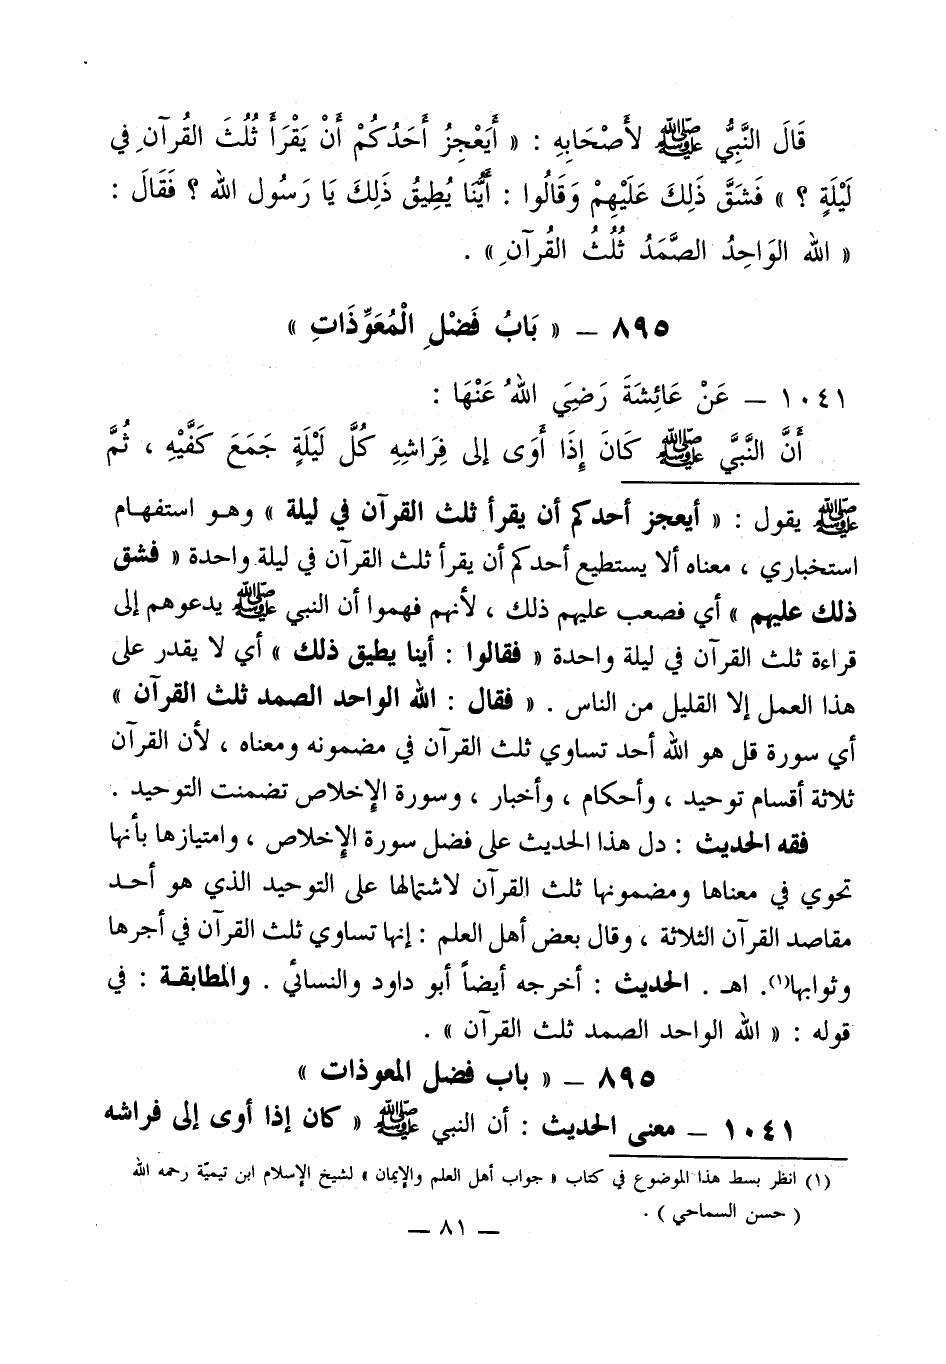 قَالَ النَّبِيُّ ﷺ لأَصْحَابِهِ : « أَيَعْجِزُ أَحَدُكُمْ أَنْ يَقْرَأَ ثُلُثَ القُرآنِ في
لَيْلَةٍ ؟ » فَشَقَّ ذَلِكَ عَلَيْهِمْ وَقَالُوا : أَيُّنَا يُطِيقُ ذَلِكَ يَا رَسُولَ الله ؟ فَقَالَ :
« الله الوَاحِدُ الصَّمَدُ ثُلُثُ القُرآنِ » .
٨٩٥ – « بَابُ فَضْلِ الْمُعَوِّذَاتِ »
١٠٤١ – عَنْ عَائِشَةَ رَضِيَ اللهُ عَنْهَا :
أَنَّ النَّبِيَّ ﷺ كَانَ إِذَا أَوَى إلى فِرَاشِهِ كُلَّ لَيْلَةٍ جَمَعَ كَفَّيْهِ ، ثُمَّ
ﷺ يقول : « أيعجز أحدكم أن يقرأ ثلث القرآن في ليلة » وهو استفهام
استخباري ، معناه ألا يستطيع أحدكم أن يقرأ ثلث القرآن في ليلة واحدة « فشق
ذلك عليهم » أي فصعب عليهم ذلك ، لأنهم فهموا أن النبي ﷺ يدعوهم إلى
قراءة ثلث القرآن في ليلة واحدة « فقالوا : أينا يطيق ذلك » أي لا يقدر على
هذا العمل إلا القليل من الناس . « فقال : الله الواحد الصمد ثلث القرآن »
أي سورة قل هو الله أحد تساوي ثلث القرآن في مضمونه ومعناه ، لأن القرآن
ثلاثة أقسام توحيد ، وأحكام ، وأخبار ، وسورة الإخلاص تضمنت التوحيد .
فقه الحديث : دل هذا الحديث على فضل سورة الإخلاص ، وامتيازها بأنها
تحوي في معناها ومضمونها ثلث القرآن لاشتمالها على التوحيد الذي هو أحد
مقاصد القرآن الثلاثة ، وقال بعض أهل العلم : إنها تساوي ثلث القرآن في أجرها
وثوابها(١). اهـ . الحديث : أخرجه أيضاً أبو داود والنسائي . والمطابقة : في
قوله : « الله الواحد الصمد ثلث القرآن » .
٨٩٥ – « باب فضل المعوذات »
١٠٤١ – معنى الحديث : أن النبي ﷺ « كان إذا أوى إلى فراشه
(١) انظر بسط هذا الموضوع في كتاب « جواب أهل العلم والإيمان » لشيخ الإسلام ابن تيميّة رحمه الله
( حسن السماحي ) .
– ٨١ –